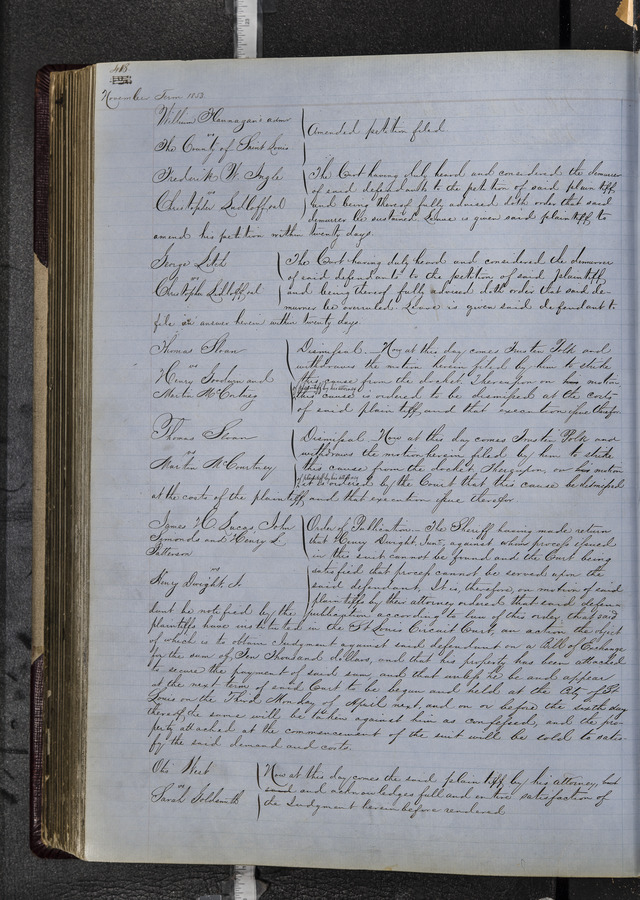 418
November Term 1853
William Hannagan's admr
vs
The County of Saint Louis
Amended petition filed
Frederick W. Ingle
vs
Christopher
The Court having duly heard and considered the demurrer
of said defendants to the petition of said plaintiff
and being thereof fully advised doth order that said
demurrer be sustained Leave is given said plaintiff to
amend his petition within twenty days.
George
vs
Christopher
The Court having duly heard and considered the demurrer
of said defendants to the petition of said plaintiff
and being thereof fully advised doth order that said de-
murrer be overruled. Leave is given said defendant to
file an answer herein within twenty days
Thomas Sloan
vs
Henry Goodwin and
Martin McCourtney
Dismissal. Now at this day comes Trusten Polk and
withdraws the motion herein filed by him to strike
this cause from the docket. Thereupon on motion
of plaintiff by his attorney
this cause is ordered to be dismissed at the costs
of said plaintiff and that execution issue therefor
Thomas Sloan
vs
Martin McCourtney
Dismissal Now at this day comes Trusten Polk and
withdraws the motion herein filed by him to strike
this cause from the docket, Thereupon, on motion
of plaintiff by his attorney
it is ordered by the Court that this cause be dismissed
at the costs of the plaintiff and that execution issue therefor
James H Lucas, John
Simonds and Henry L
Patterson
vs
Henry Dwight Jr
Order of Publication. The Sheriff having made return
that Henry Dwight, Junr. against whom process issued
in this suit cannot be found and the Court being
satisfied that process cannot be served upon the
said defendant, It is, therefore, on motion of said
plaintiffs by their attorney ordered that said defen-
dant be notified by the publication according to law of this order, that said
plaintiffs have instituted in the St Louis Circuit Court, an action the object
of which is to obtain Judgment against said defendant on a Bill of Exchange
for the sum of Ten Thousand dollars, and that his property has been attached
to secure the payment of said sum and that unless he be and appear
at the next term of said Court to be begun and held at the City of St
Louis on the Third Monday of April next, and on or before the sixth day
thereof, the same will be taken against him as confessed, and the pro-
perty attached at the commencement of the suit will be sold to satis-
fy the said demand and costs.
Otis West
vs
Sarah Goldsmith
Now at this day comes the said plaintiff by his attorney,
and acknowledges full and entire satisfaction of
the Judgment hereinbefore rendered